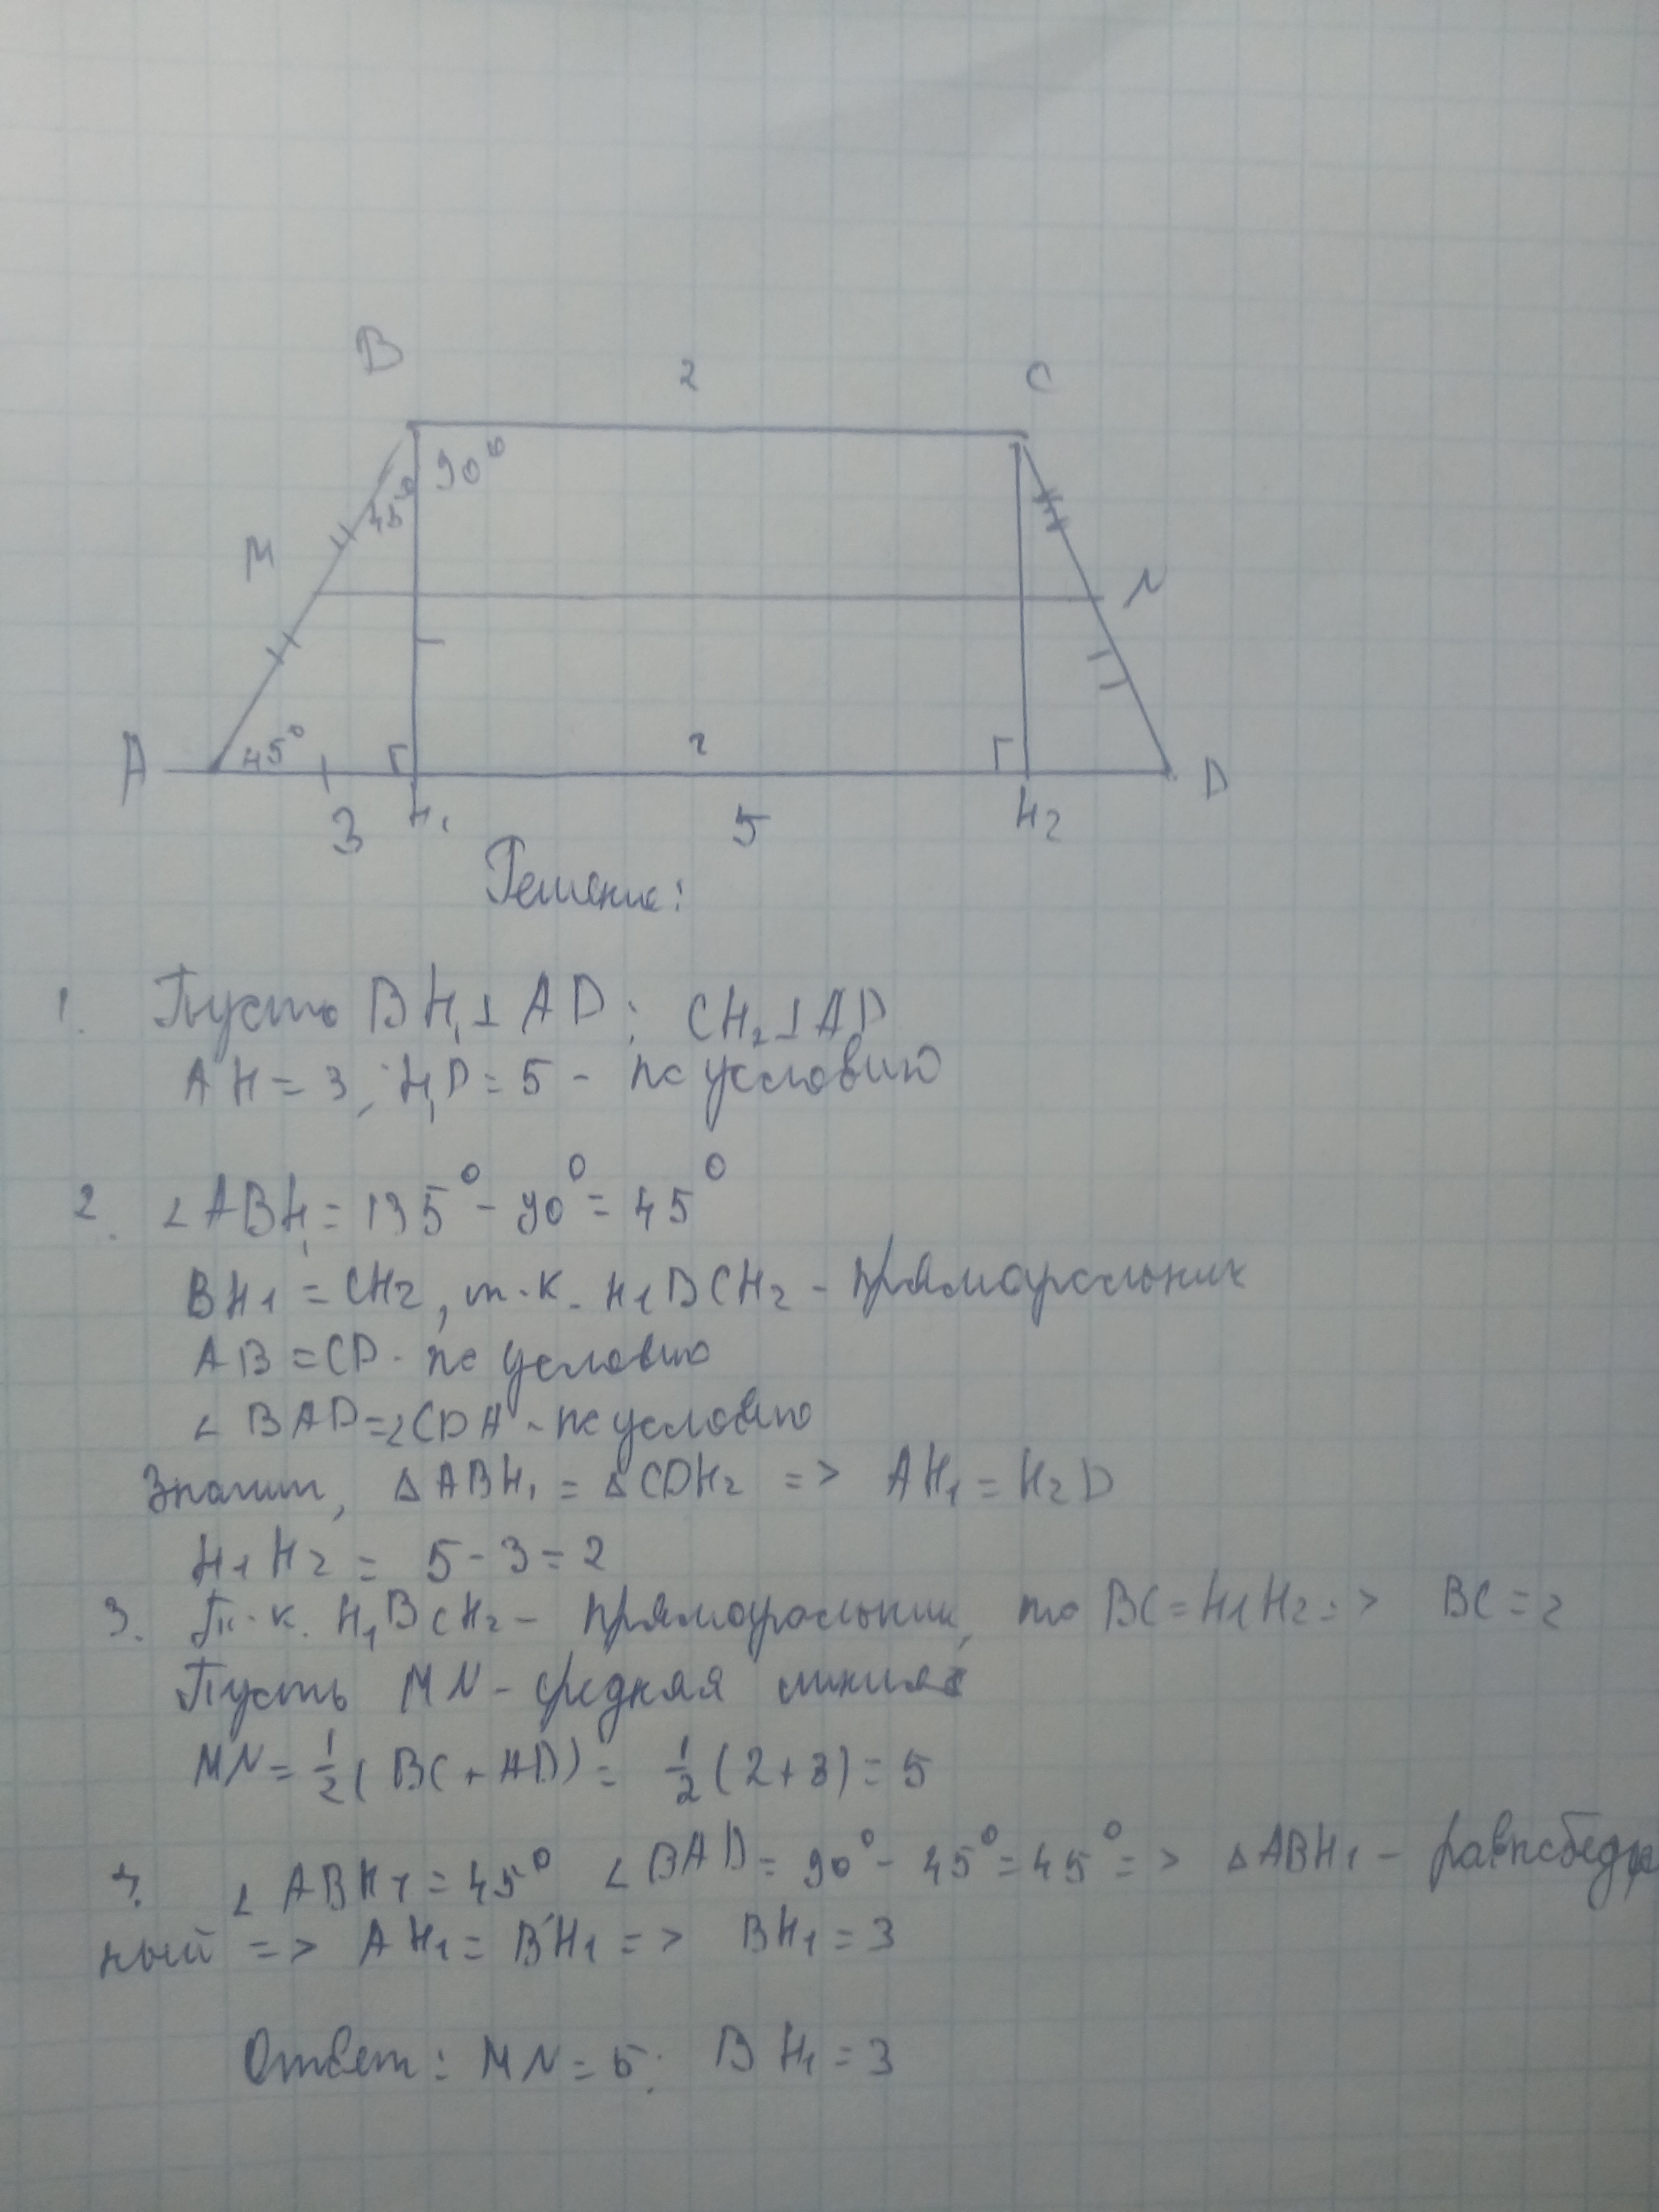 B 2 C
90°
45°
M
N
A 45° Г 2 Г D
3 H₁ 5 H2
Решение:
1. Пусть BH₁ ⊥ AD; CH₂ ⊥ AD
AH = 3; H₁D = 5 - по условию
2. ∠ABH₁ = 135° - 90° = 45°
BH1 = CH2, т.к. H1BCH2 - прямоугольник
AB = CD - по условию
∠BAD = ∠CDA - по условию
Значит, △ABH₁ = △CDH2 => AH₁ = H2D
H1H2 = 5 - 3 = 2
3. Т.к. H₁BCH2 - прямоугольник, то BC = H1H2 => BC = 2
Пусть MN - средняя линия
MN = 1/2 (BC + AD) = 1/2 (2 + 8) = 5
4. ∠ABH1 = 45° ∠BAD = 90° - 45° = 45° => △ABH1 - равнобедрен
ный => AH1 = BH1 => BH1 = 3
Ответ: MN = 5; BH₁ = 3